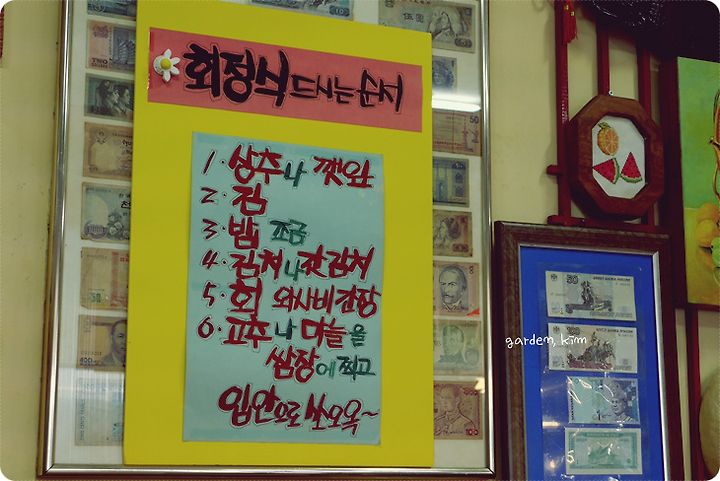 회정식 드시는 순서
1. 상추나 깻잎
2. 김
3. 밥 조금
4. 김치나 갓김치
5. 회 와사비 간장
6. 고추나 마늘을
쌈장에 찍고
입안으로 쏘오옥~
garden, kim
50
100
5